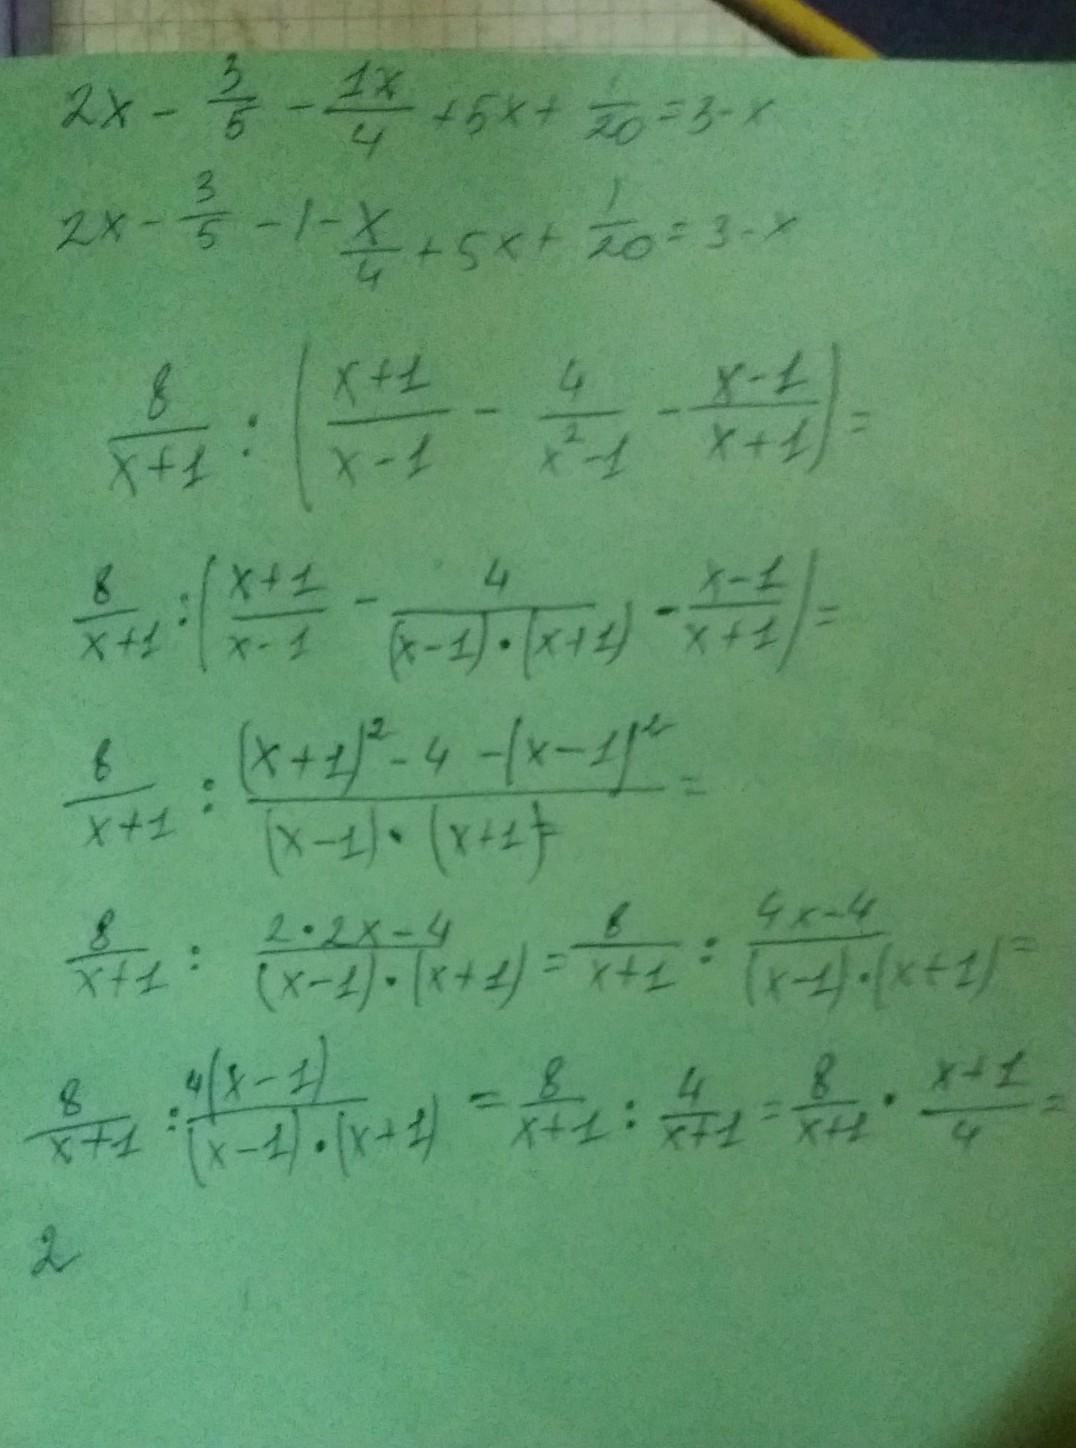 2x - 3/5 - 1x/4 + 5x + 1/20 = 3 - x
2x - 3/5 - 1 - x/4 + 5x + 1/20 = 3 - x
8/(x+1) : ((x+1)/(x-1) - 4/(x²-1) - (x-1)/(x+1)) =
8/(x+1) : ((x+1)/(x-1) - 4/((x-1)·(x+1)) - (x-1)/(x+1)) =
8/(x+1) : ((x+1)² - 4 - (x-1)²)/((x-1)·(x+1)) =
8/(x+1) : (2·2x-4)/((x-1)·(x+1)) = 8/(x+1) : (4x-4)/((x-1)·(x+1)) =
8/(x+1) : 4(x-1)/((x-1)·(x+1)) = 8/(x+1) : 4/(x+1) = 8/(x+1) · (x+1)/4 =
2